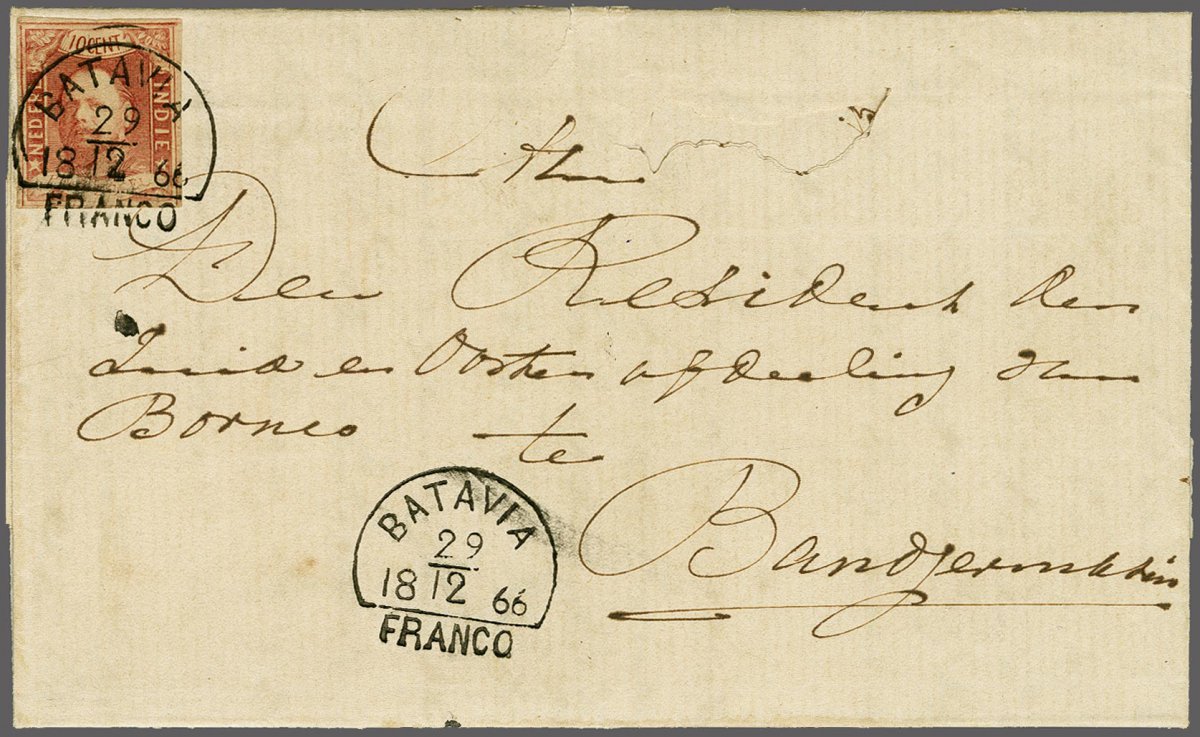 10 CENT
NEDER
INDIE
BATAVIA
29
18 12 66
FRANCO
Aan
Den Resident der
Zuid en Ooster afdeeling van
Borneo te
Bandjermasin
BATAVIA
29
18 12 66
FRANCO